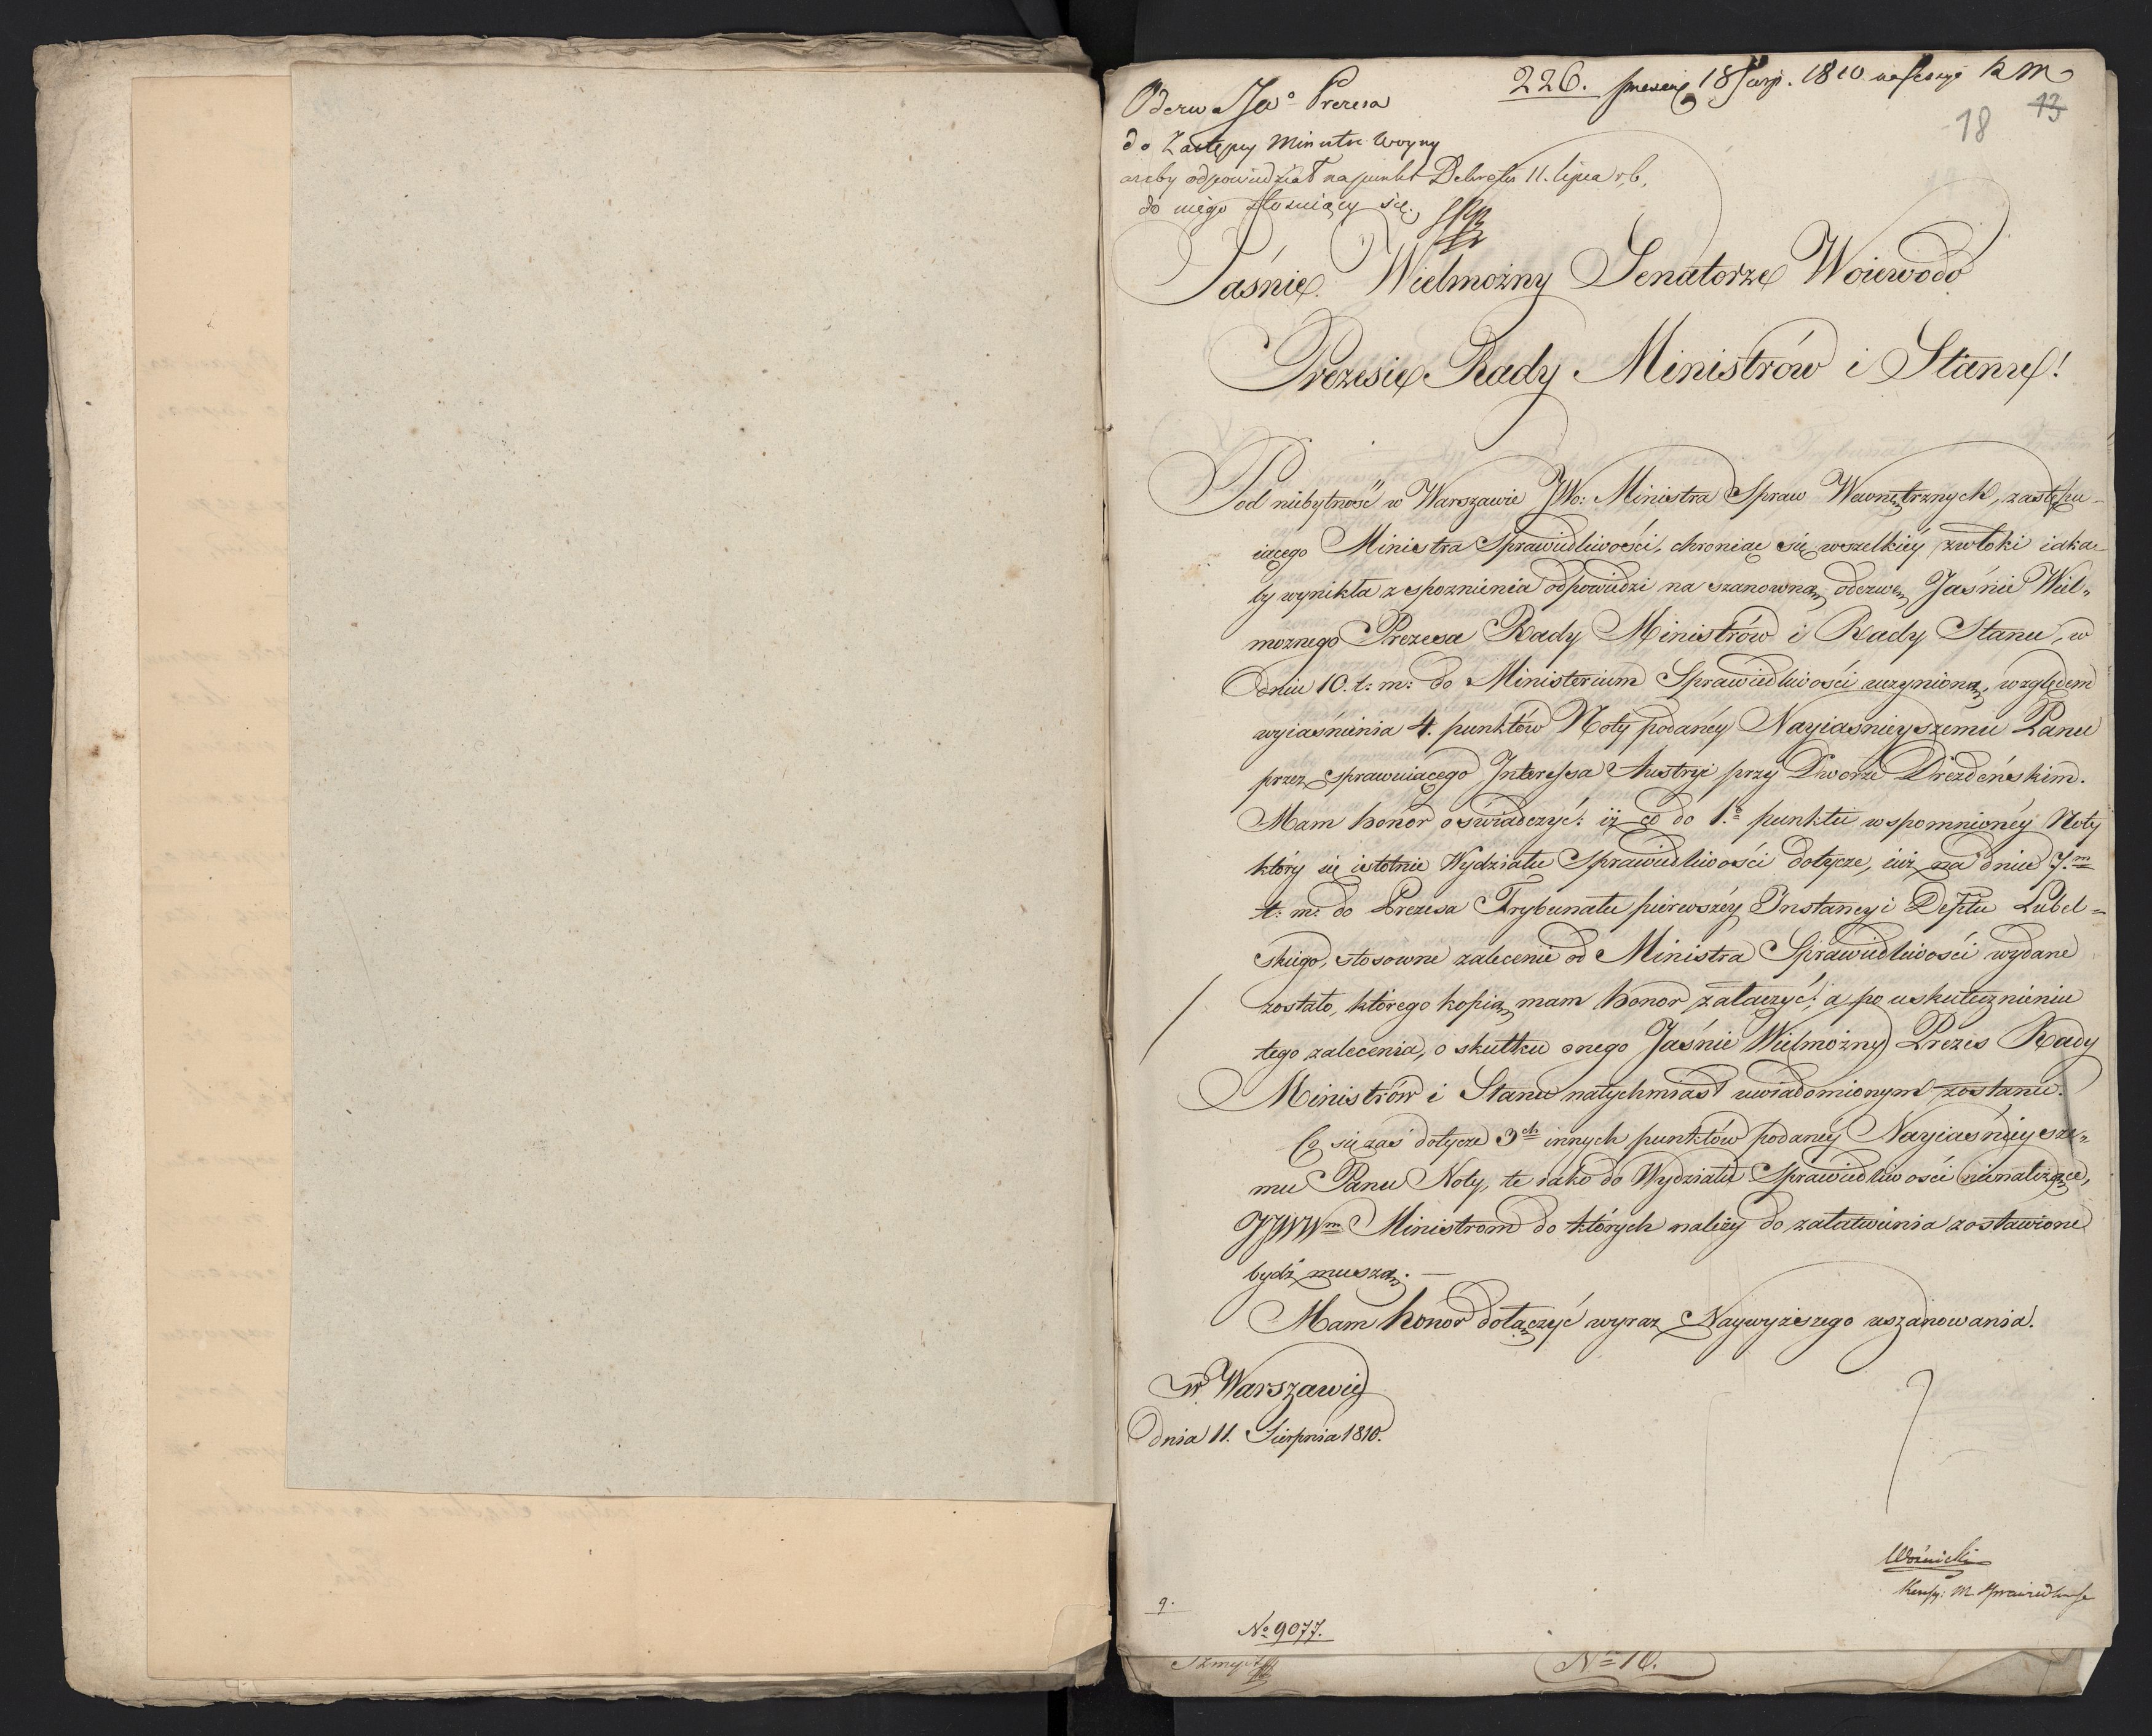 226. 18 Sierp. 1810
18 13
Odezwa JWo Prezesa
do Zastępcy Ministra Woyny
azeby odpowiedział na punkt Dekretu 11. lipca r.b.
do niego stosuiący się.
Jaśnie Wielmożny Senatorze Woiewodo
Prezesie Rady Ministrów i Stanu!
Pod niebytność w Warszawie JWo: Ministra Spraw Wewnętrznych, zastępu-
iącego Ministra Sprawiedliwości, chroniąc się wszelkiéy zwłoki iaka-
by wynikła z spoznienia odpowiedzi na szanowną odezwę Jaśnie Wiel„
moznego Prezesa Rady Ministrów i Rady Stanu, w
dniu 10. t: m: do Ministerium Sprawiedliwości uczynioną, względem
wyiaśnienia 4. punktów Noty podanéy Nayiasnieyszemu Panu
przez sprawuiącego Interessa Austryi przy Dworze Drezdeńskim.
Mam honor oświadczyć: iż co do 1.o punktu wspomnionéy Noty
który się istotnie Wydziału Sprawiedliwości dotycze, iuż na dniu 7.m
t: m: do Prezesa Trybunału pierwszéy Instancyi Deptu Lubel=
skiego, stosowne zalecenie od Ministra Sprawiedliwości wydane
zostało, którego kopią mam honor załączyć; a po uskutecznieniu
tego zalecenia, o skutku onego Jaśnie Wielmożny Prezes Rady
Ministrów i Stanu natychmiast uwiadomionym zostanie.
Co się zaś dotycze 3ch innych punktów podaney Nayiaśnieysze„
mu Panu Noty, te iako do Wydziału Sprawiedliwości nienależące,
JJWWm Ministrom do których należy do załatwienia zostawione
bydź muszą. —
Mam honor dołączyć wyraz Naywyższego uszanowania.
w Warszawie
Dnia 11. Sierpnia 1810.
Woźnicki
M. Sprawiedliwości
9.
No 9077.
No 10.